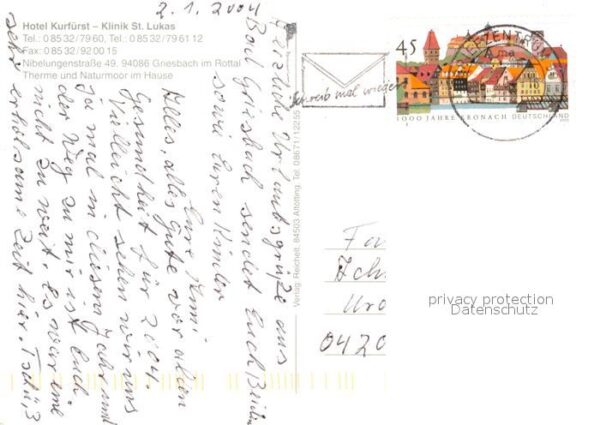 2.1.2004
Hotel Kurfürst – Klinik St. Lukas
Tel.: 0 85 32 / 79 60, Tel.: 0 85 32 / 79 61 12
Fax: 0 85 32 / 92 00 15
Nibelungenstraße 49, 94086 Griesbach im Rottal
Therme und Naturmoor im Hause
Herzliche Urlaubsgrüße aus
Bad Griesbach sendet Euch
sowie Euren Kinder
Eure
Alles, alles Gute vor allem
Gesundheit für 2004
Vielleicht sehen wir uns
ja mal in diesem Jahr und
der Weg zu mir ist Euch
nicht zu weit. Es war eine
sehr erholsame Zeit hier.
Verlag: Reichelt, 84503 Altötting Tel. 08671/12255
Schreib mal wieder
BRIEFZENTRUM
45
1000 JAHRE KRONACH DEUTSCHLAND
Fa
Uro
0420
privacy protection
Datenschutz